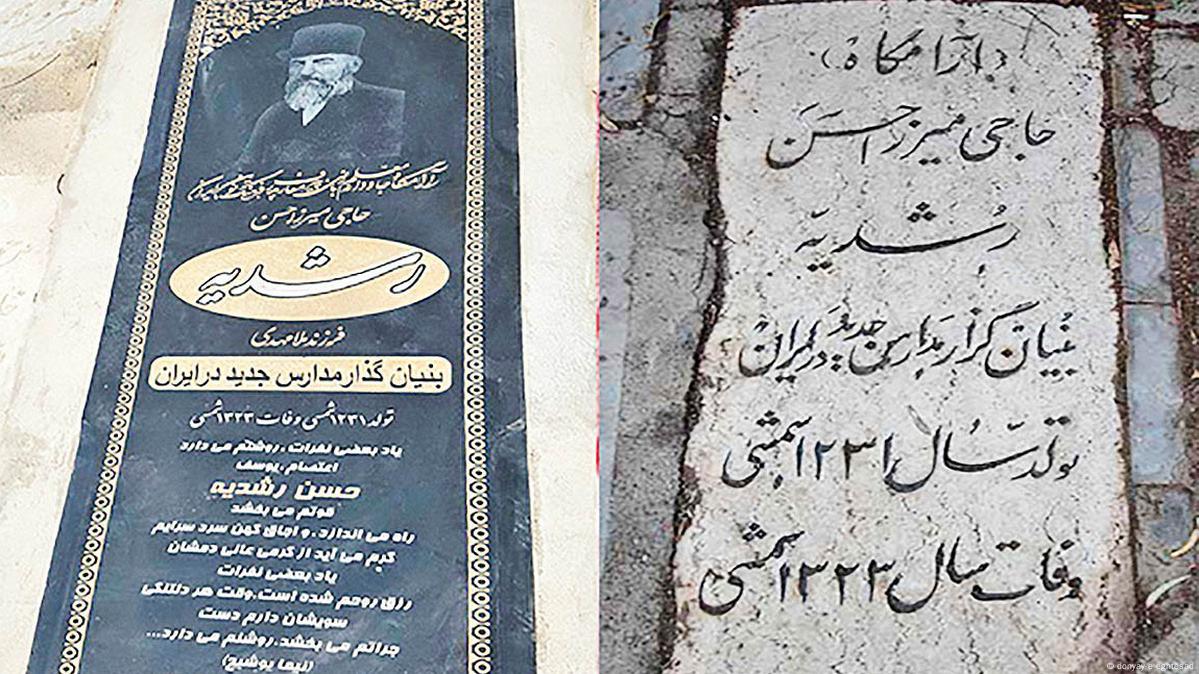 آرامگاه جاودان معلم
حاجی میرزا حسن
رشدیه
فرزند ملا مهدی
بنیان گذار مدارس جدید در ایران
تولد ۱۲۳۱ شمسی وفات ۱۳۲۳ شمسی
یاد بعضی نفرات، روشنم می دارد
اعتصام، یوسف
حسن رشدیه
قوتم می بخشد
راه می اندازد. و اجاق کهن سرد سرایم
گرم می آید از گرمی عالی دمشان
یاد بعضی نفرات
رزق روحم شده است. وقت هر دلتنگی
سویشان دارم دست
جراتم می بخشد. روشنم می دارد...
(نیما یوشیج)
(آرامگاه)
حاجی میرزا حسن
رُشدیّه
بُنیان گزار مدارس جدید در ایران
تولد سال ۱۲۳۱ شمسی
وفات سال ۱۳۲۳ شمسی
© donyay-e-eghtesad